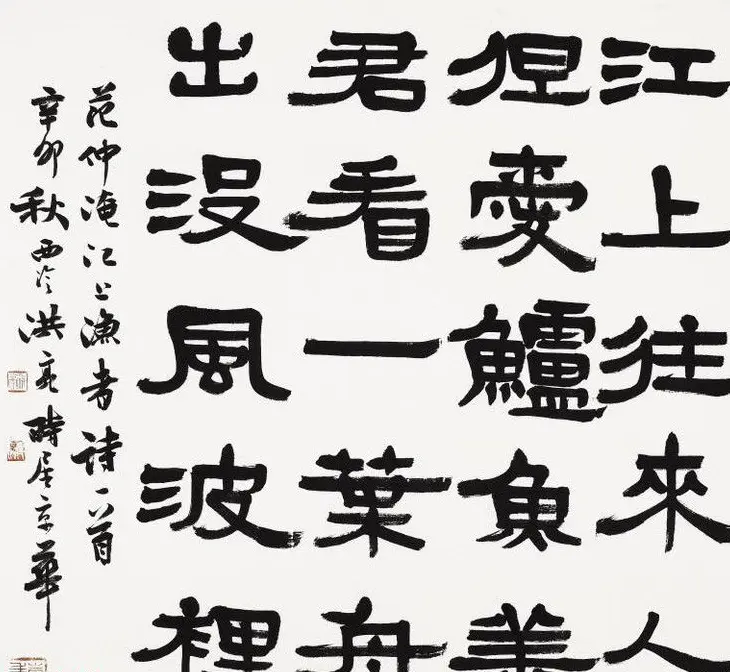 江上往來人
但愛鱸魚美
君看一葉舟
出沒風波裡
范仲淹江上漁者詩一首
辛卯秋西泠洪亮時居京華